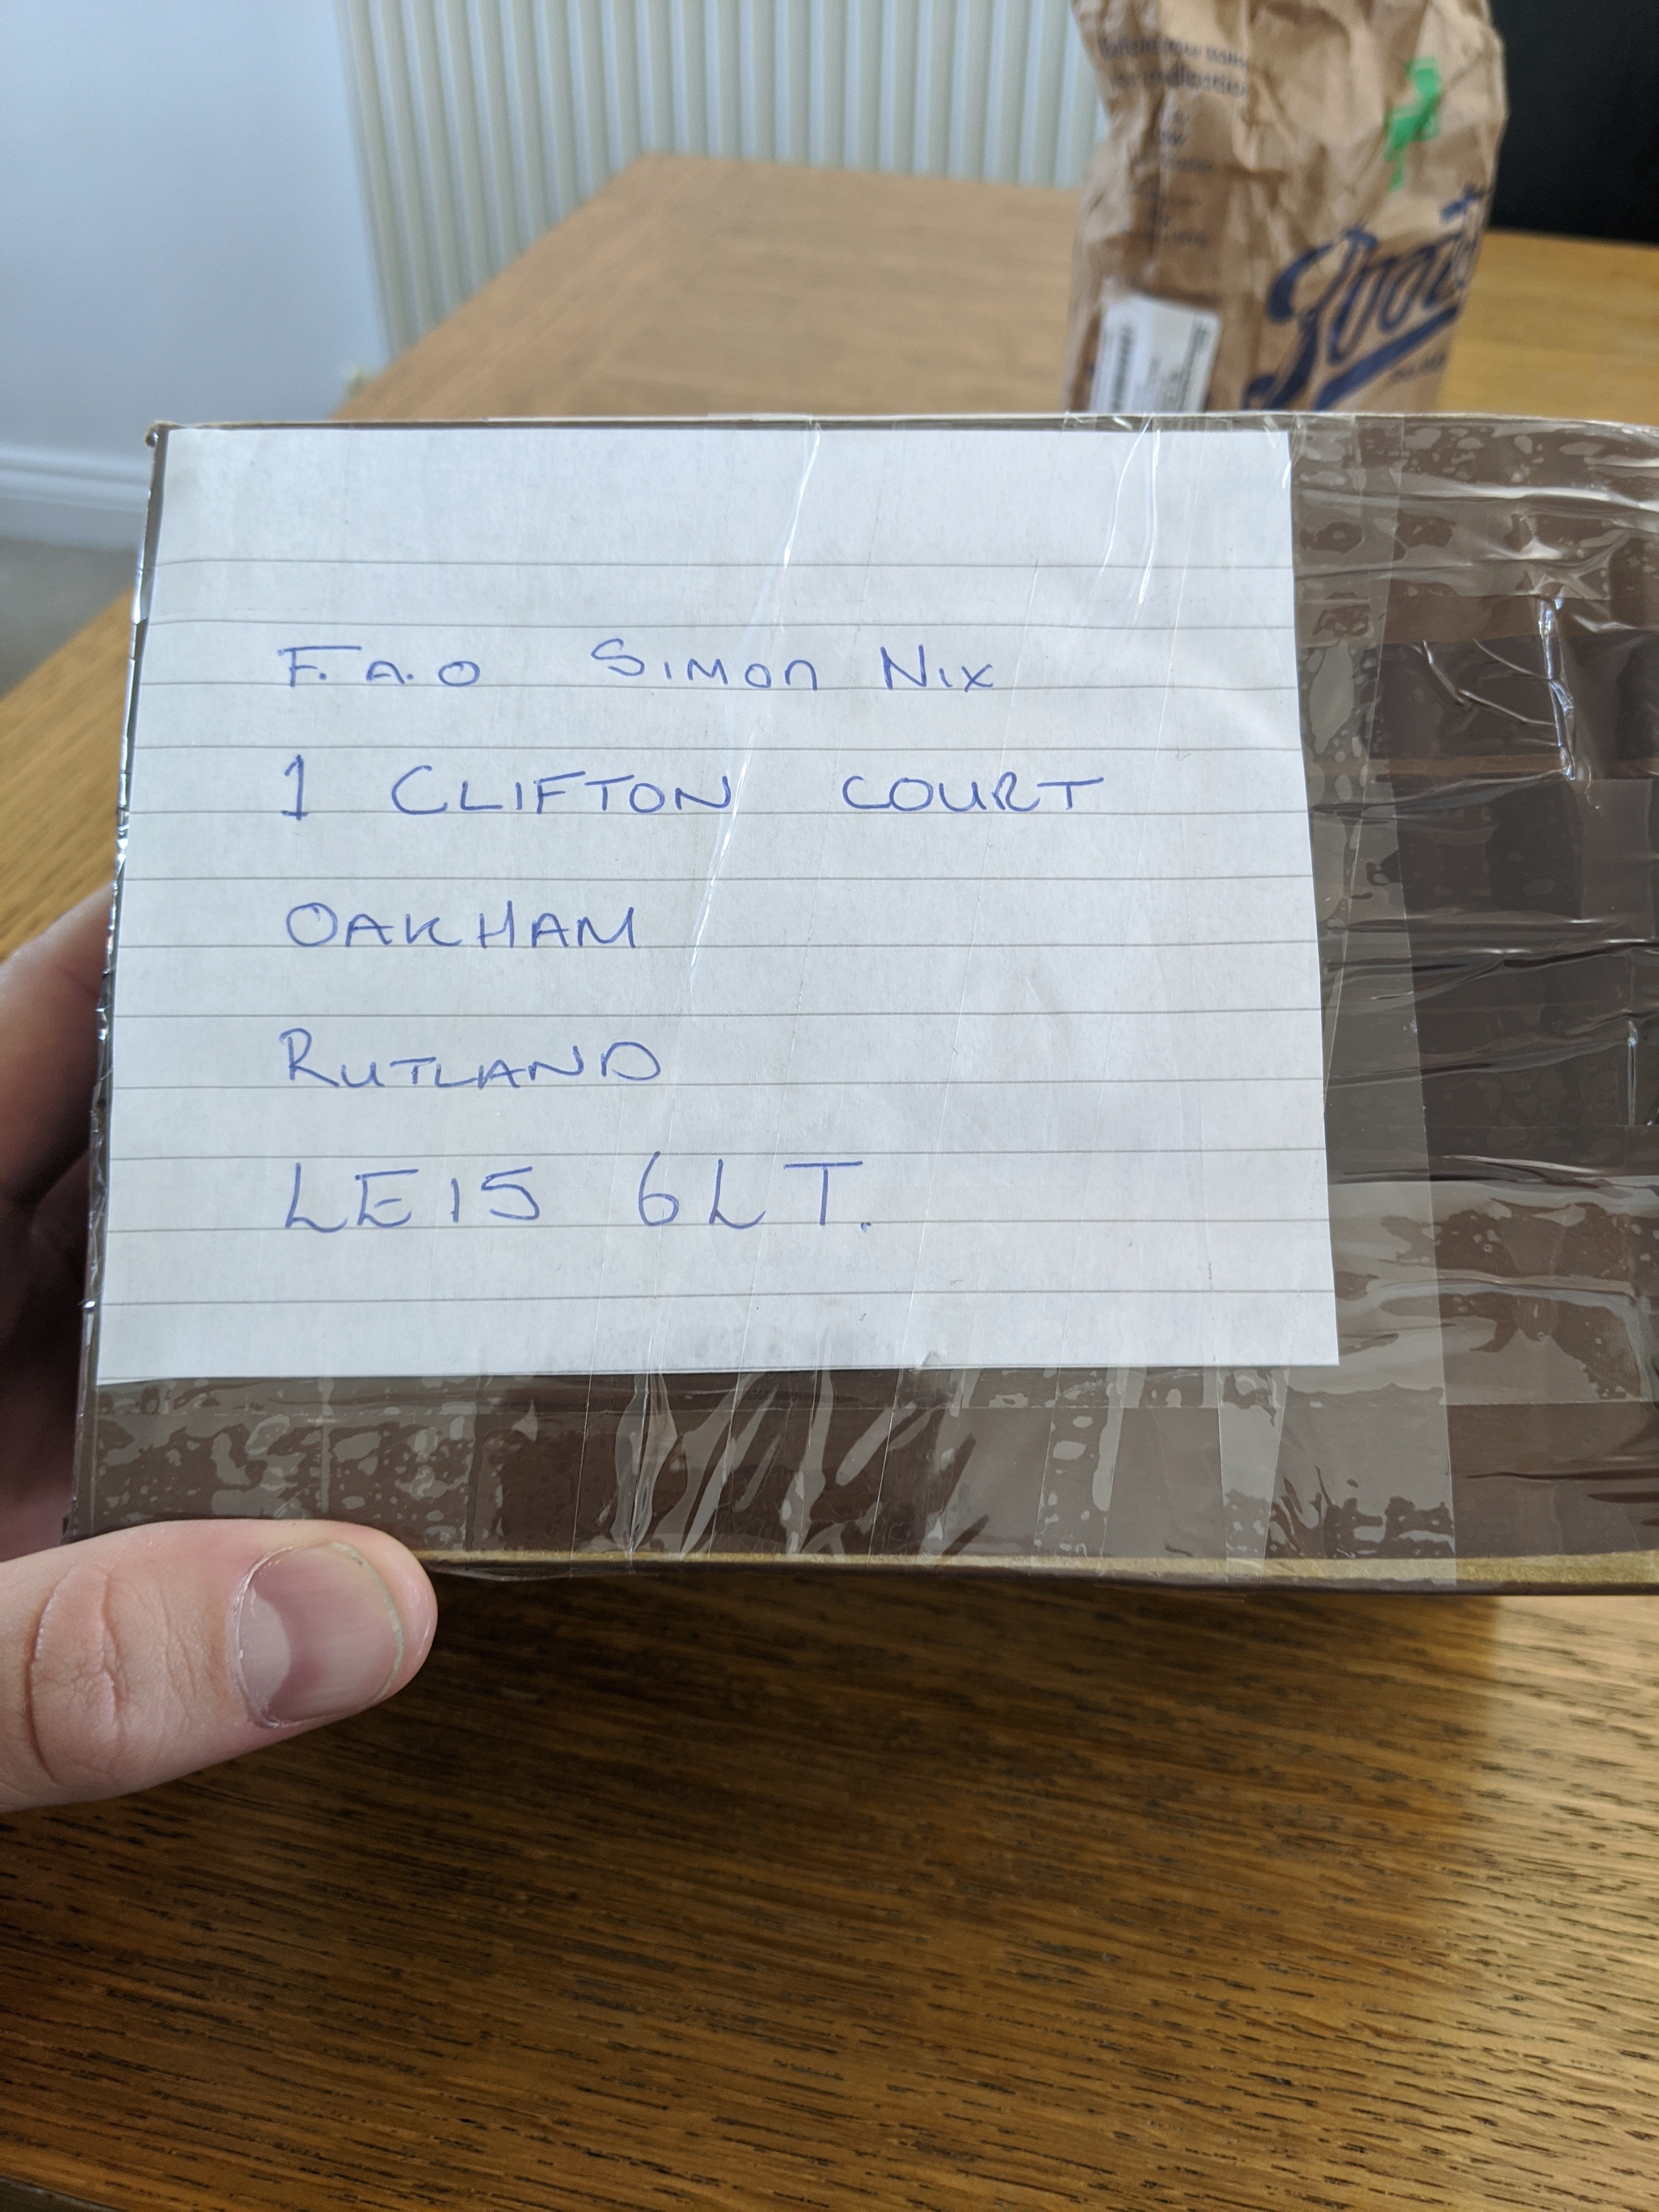 Boots
F.A.O Simon Nix
1 CLIFTON COURT
OAKHAM
RUTLAND
LE15 6LT.